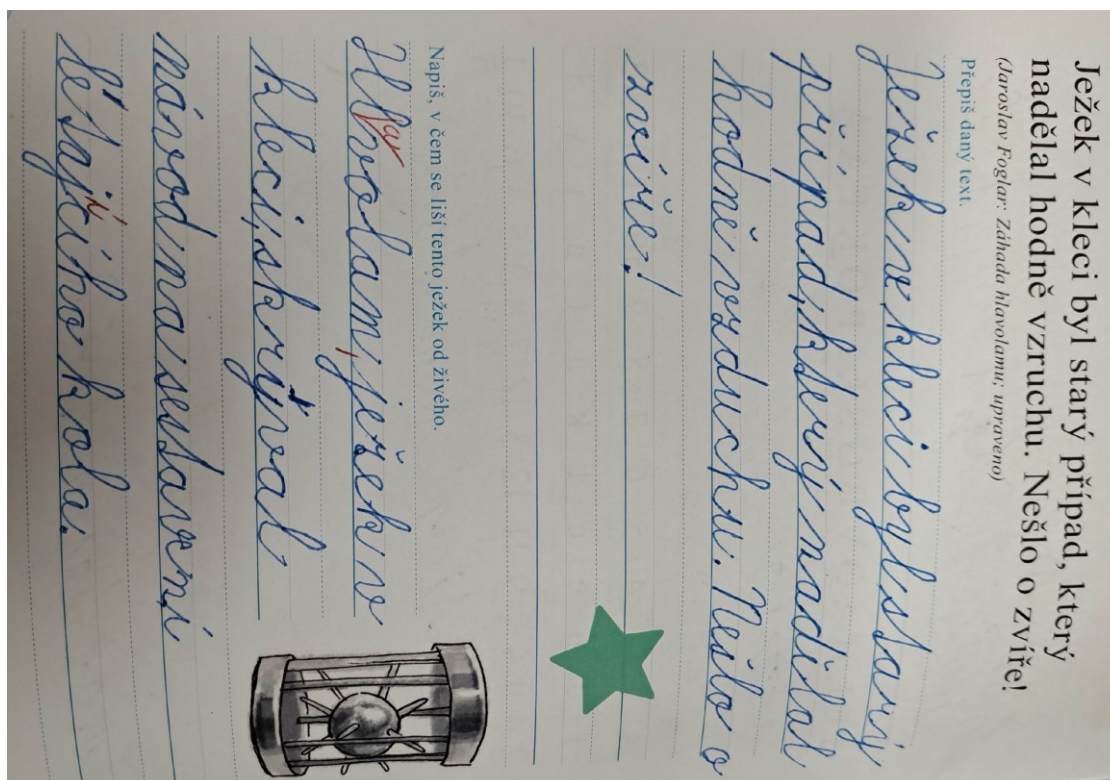 Ježek v kleci byl starý případ, který
nadělal hodně vzruchu. Nešlo o zvíře!
(Jaroslav Foglar: Záhada hlavolamu; upraveno)
Přepiš daný text.
Ježek v kleci byl starý
případ, který nadělal
hodně vzduchu. Nešlo o
zvíře!
Napiš, v čem se liší tento ježek od živého.
Hlavolam, ježek v
kleci, skrýval
návod na sestavení
létajícího kola.